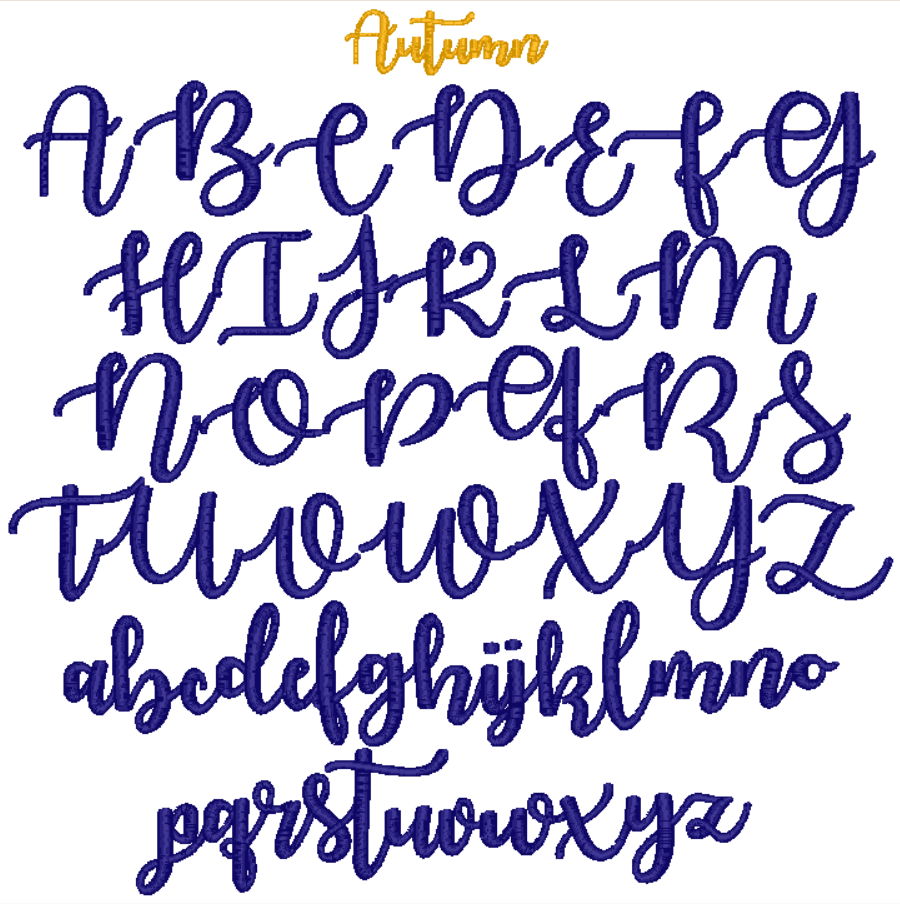 Autumn
ABCDEFG
HIJKLM
NOPQRS
TUVWXYZ
abcdefghijklmno
pqrstuvwxyz